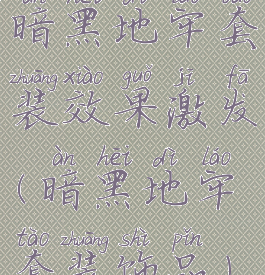 àn hēi dì láo tào
暗黑地牢套
zhuāng xiào guǒ jī fā
装效果激发
àn hēi dì láo
(暗黑地牢
tào zhuāng shì pǐn
套装饰品)